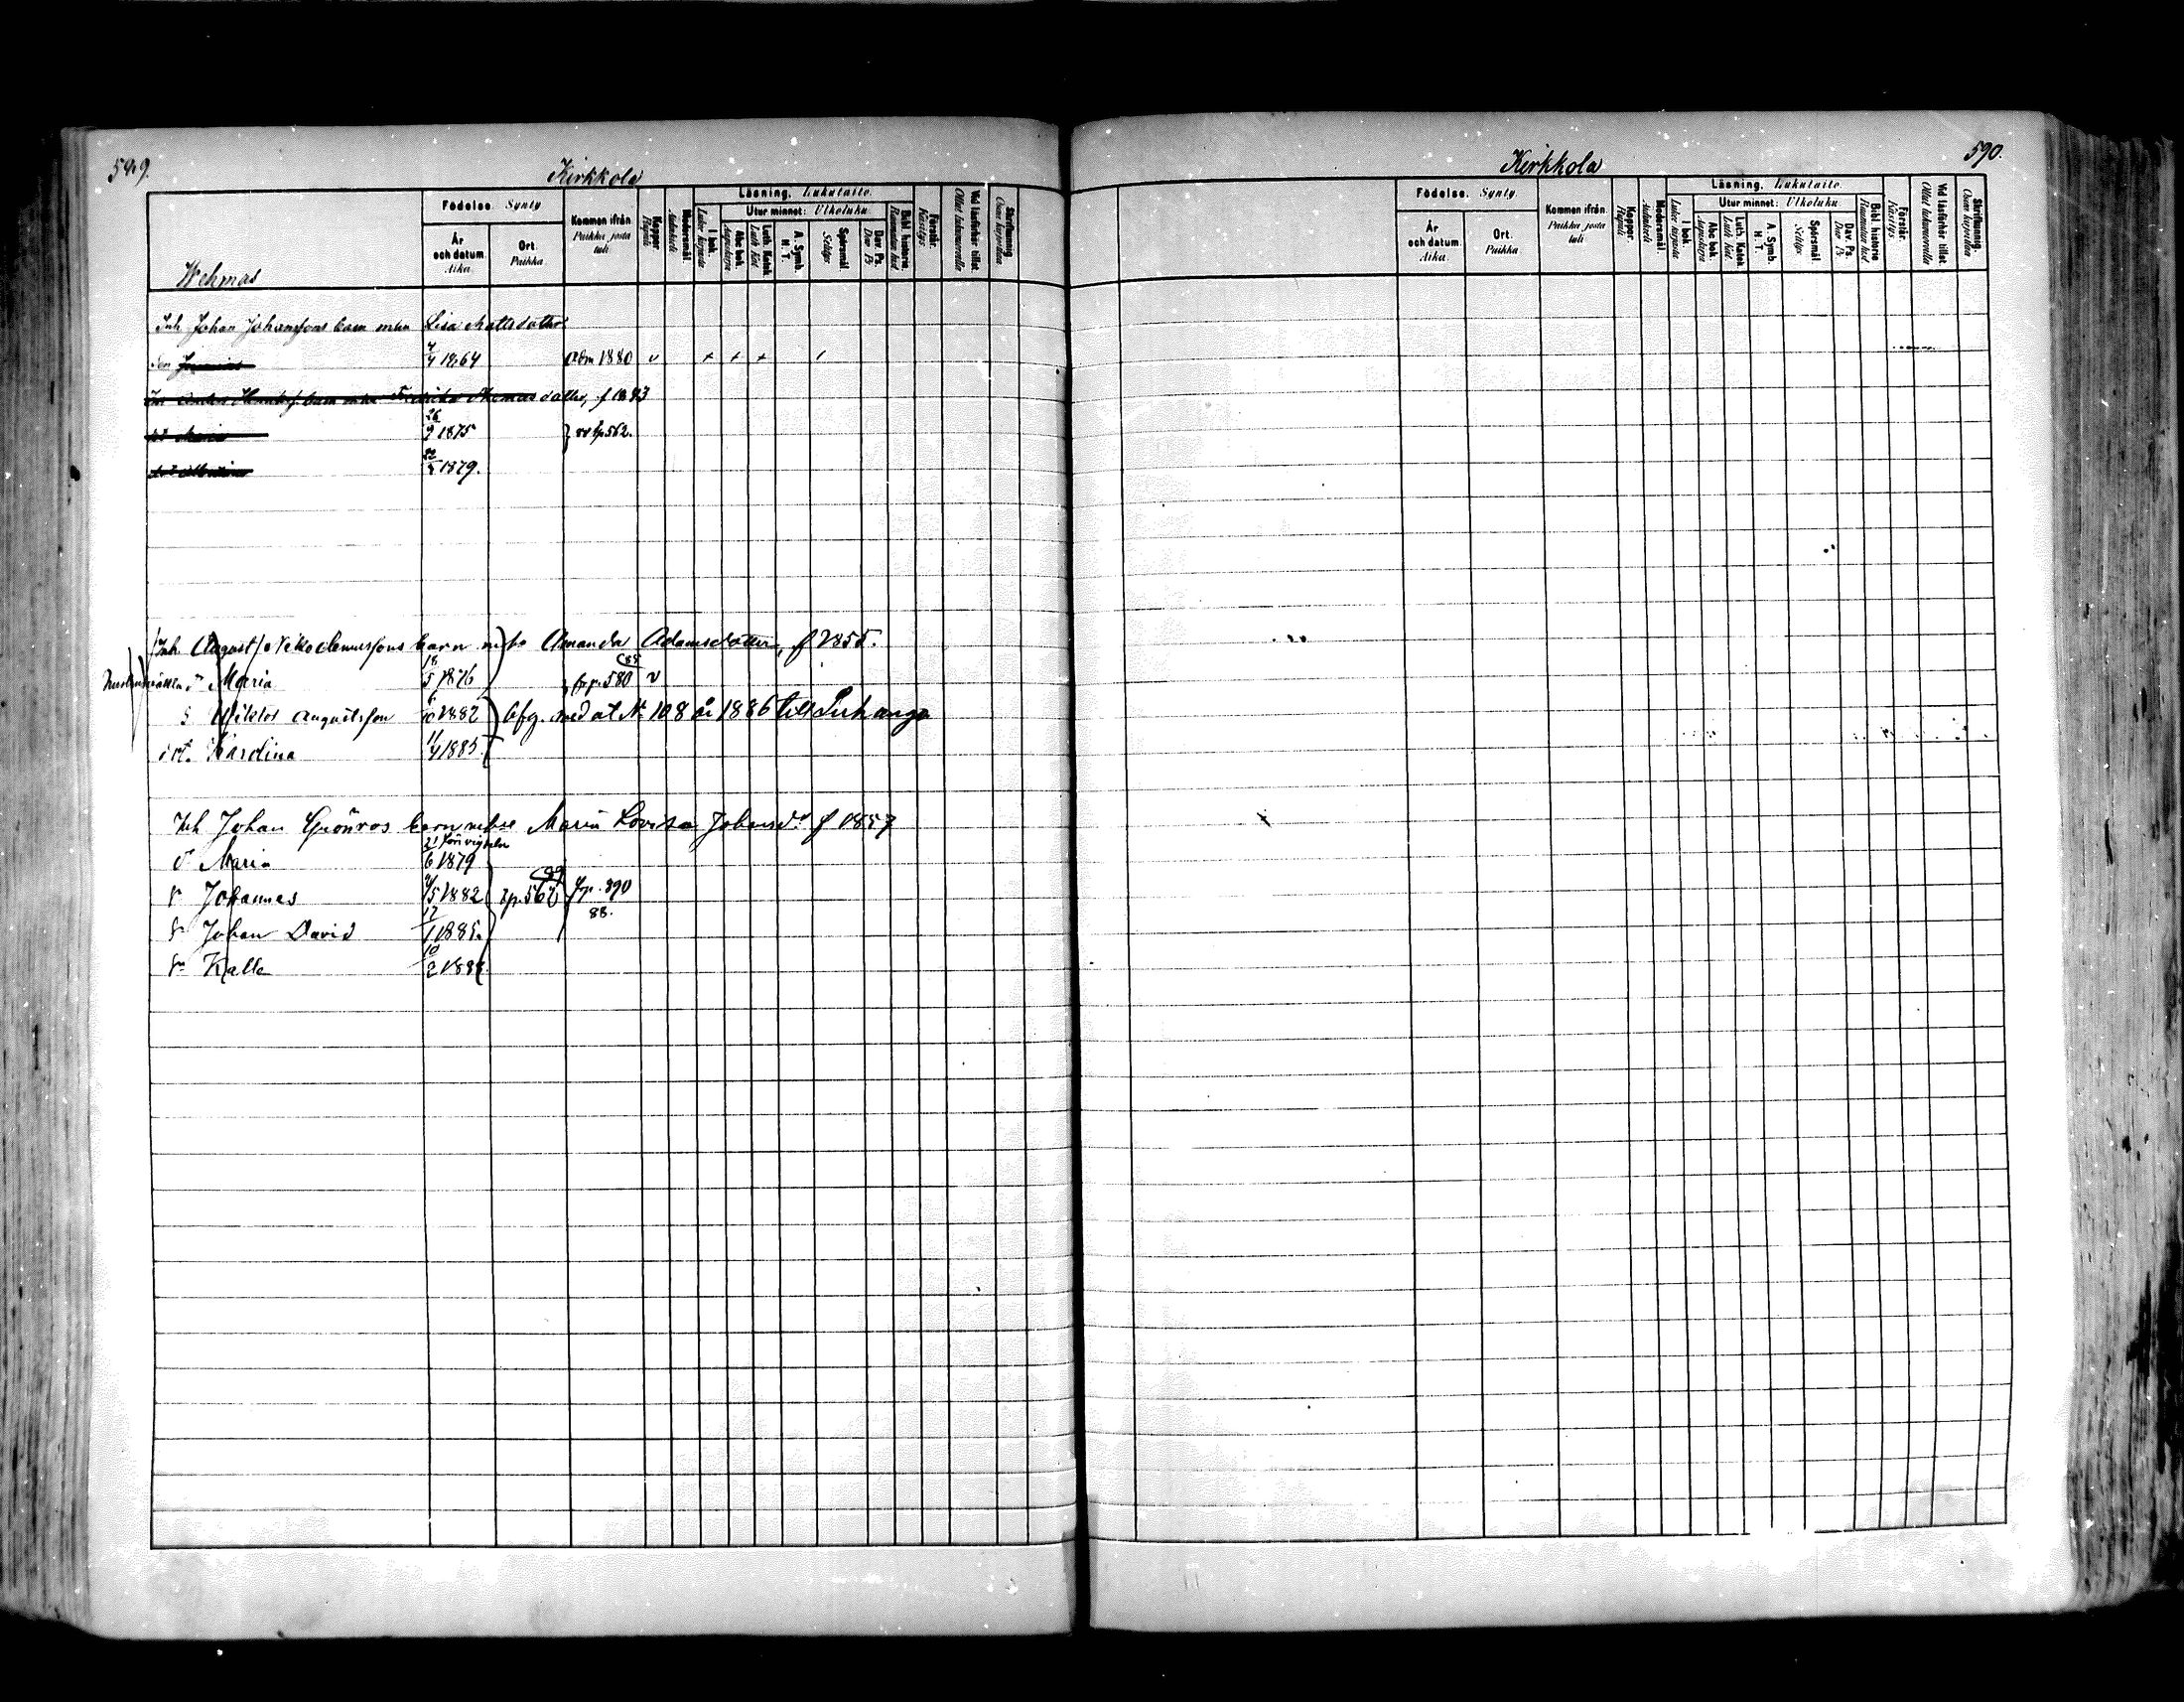 589.
Kirkkola
Wehmas
Födelse. Synty
År och datum. Aika.
Ort. Paikka.
Kommen ifrån. Paikka josta tuli
Koppor. Rupuli
Modersmål. Äidinkieli
Läsning. Lukutaito.
I bok. Lukee kirjasta
Utur minnet: Ulkoluku
Abc bok. Aapiskirja
Luth. Katek. Luth Kat.
A. Symb. H. T.
Spörsmål. Selitys
Dav. Ps. Dav Ps
Bibl. historie. Raamatun hist.
Förstår. Käsitys
Vid läsförhör tillst. Ollut lukuvuorolla
Skriftkunnig. Osaa kirjoittaa
Inh Johan Johanssons barn m hu Lisa Mattsdotter
Son 4/4 1864 Abm 1880 v x x x /
Inh Anders barn m hu Fredrika Thomasdotter, f 1843
dot Maria 26/9 1875 } p 562.
dot 22/5 1879.
Inh August Nikodemussons barn m hu Amanda Adamsdotter, f 1855.
dr Maria 18/5 1876 fr p. 580 88 v
S Wiktor Augustsson 6/10 1882 Afg. med at N. 108 år 1886 till Luhanga
dot. Karolina 11/4 1885.
Inh Johan Grönros barn m hu Maria Lovisa Johansdr f 1857
dr Maria 21/6 1879 före vigseln
Sn Johannes /5 1882 p 562 89 fr p. 390
88.
Sn Johan David 17/1 1885.
Sn Kalle 10/2 1888
Kirkkola
590.
Födelse. Synty
År och datum. Aika
Ort. Paikka
Kommen ifrån. Paikka josta tuli
Koppor. Rupuli
Modersmål. Äidinkieli
Läsning. Lukutaito.
I bok. Lukee kirjasta
Utur minnet: Ulkoluku
Abc bok. Aapiskirja
Luth. Katek. Luth Kat.
A. Symb. H. T.
Spörsmål. Selitys
Dav. Ps. Dav Ps
Bibl. historie Raamatun hist
Förstår. Käsitys
Vid läsförhör tillst. Ollut lukuvuorolla
Skriftkunnig. Osaa kirjoittaa